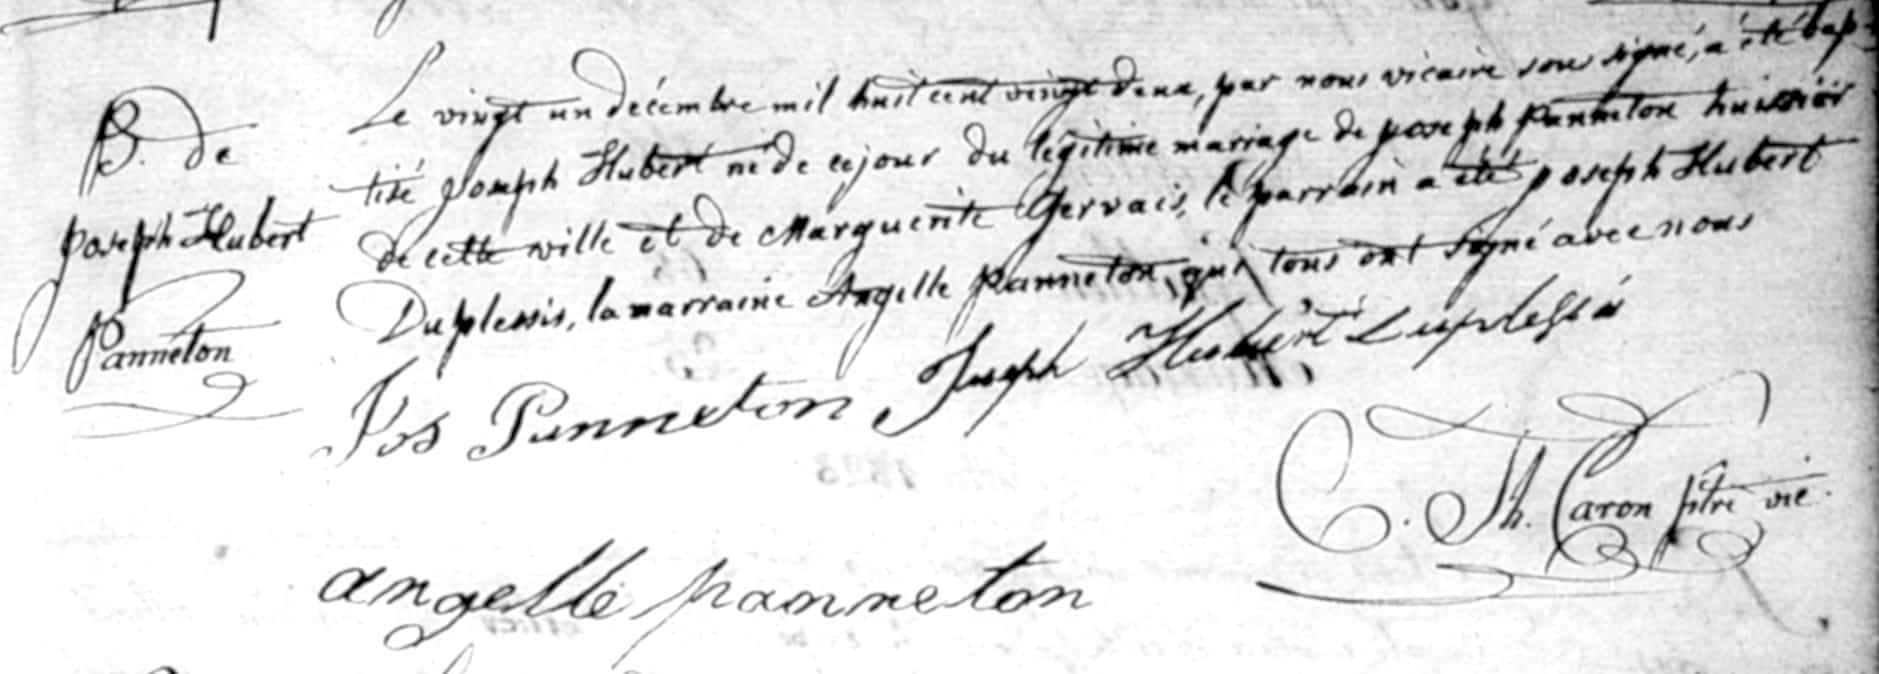 B. de
Joseph Hubert
Panneton
Le vingt un décembre mil huit cent vingt deux, par nous vicaire sousigné, a été bap-
tisé Joseph Hubert né de ce jour du légitime mariage de Joseph Panneton huissier
de cette ville et de Marguerite Gervais, le parrain a été Joseph Hubert
Duplessis, la marraine Angelle Panneton, qui tous ont signé avec nous
Jos Panneton Joseph Hubert Duplessis
C. Th. Caron ptre vic.
angelle panneton